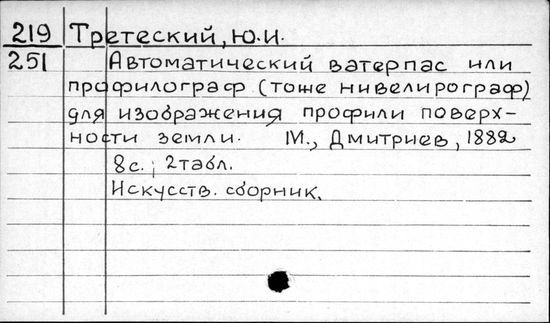 219 Третеский, Ю.И.
251 Автоматический ватерпас или
профилограф (тоже нивелирограф)
для изображения профили поверх-
ности земли. М., Дмитриев, 1882
8с.; 2табл.
Искусств. сборник.